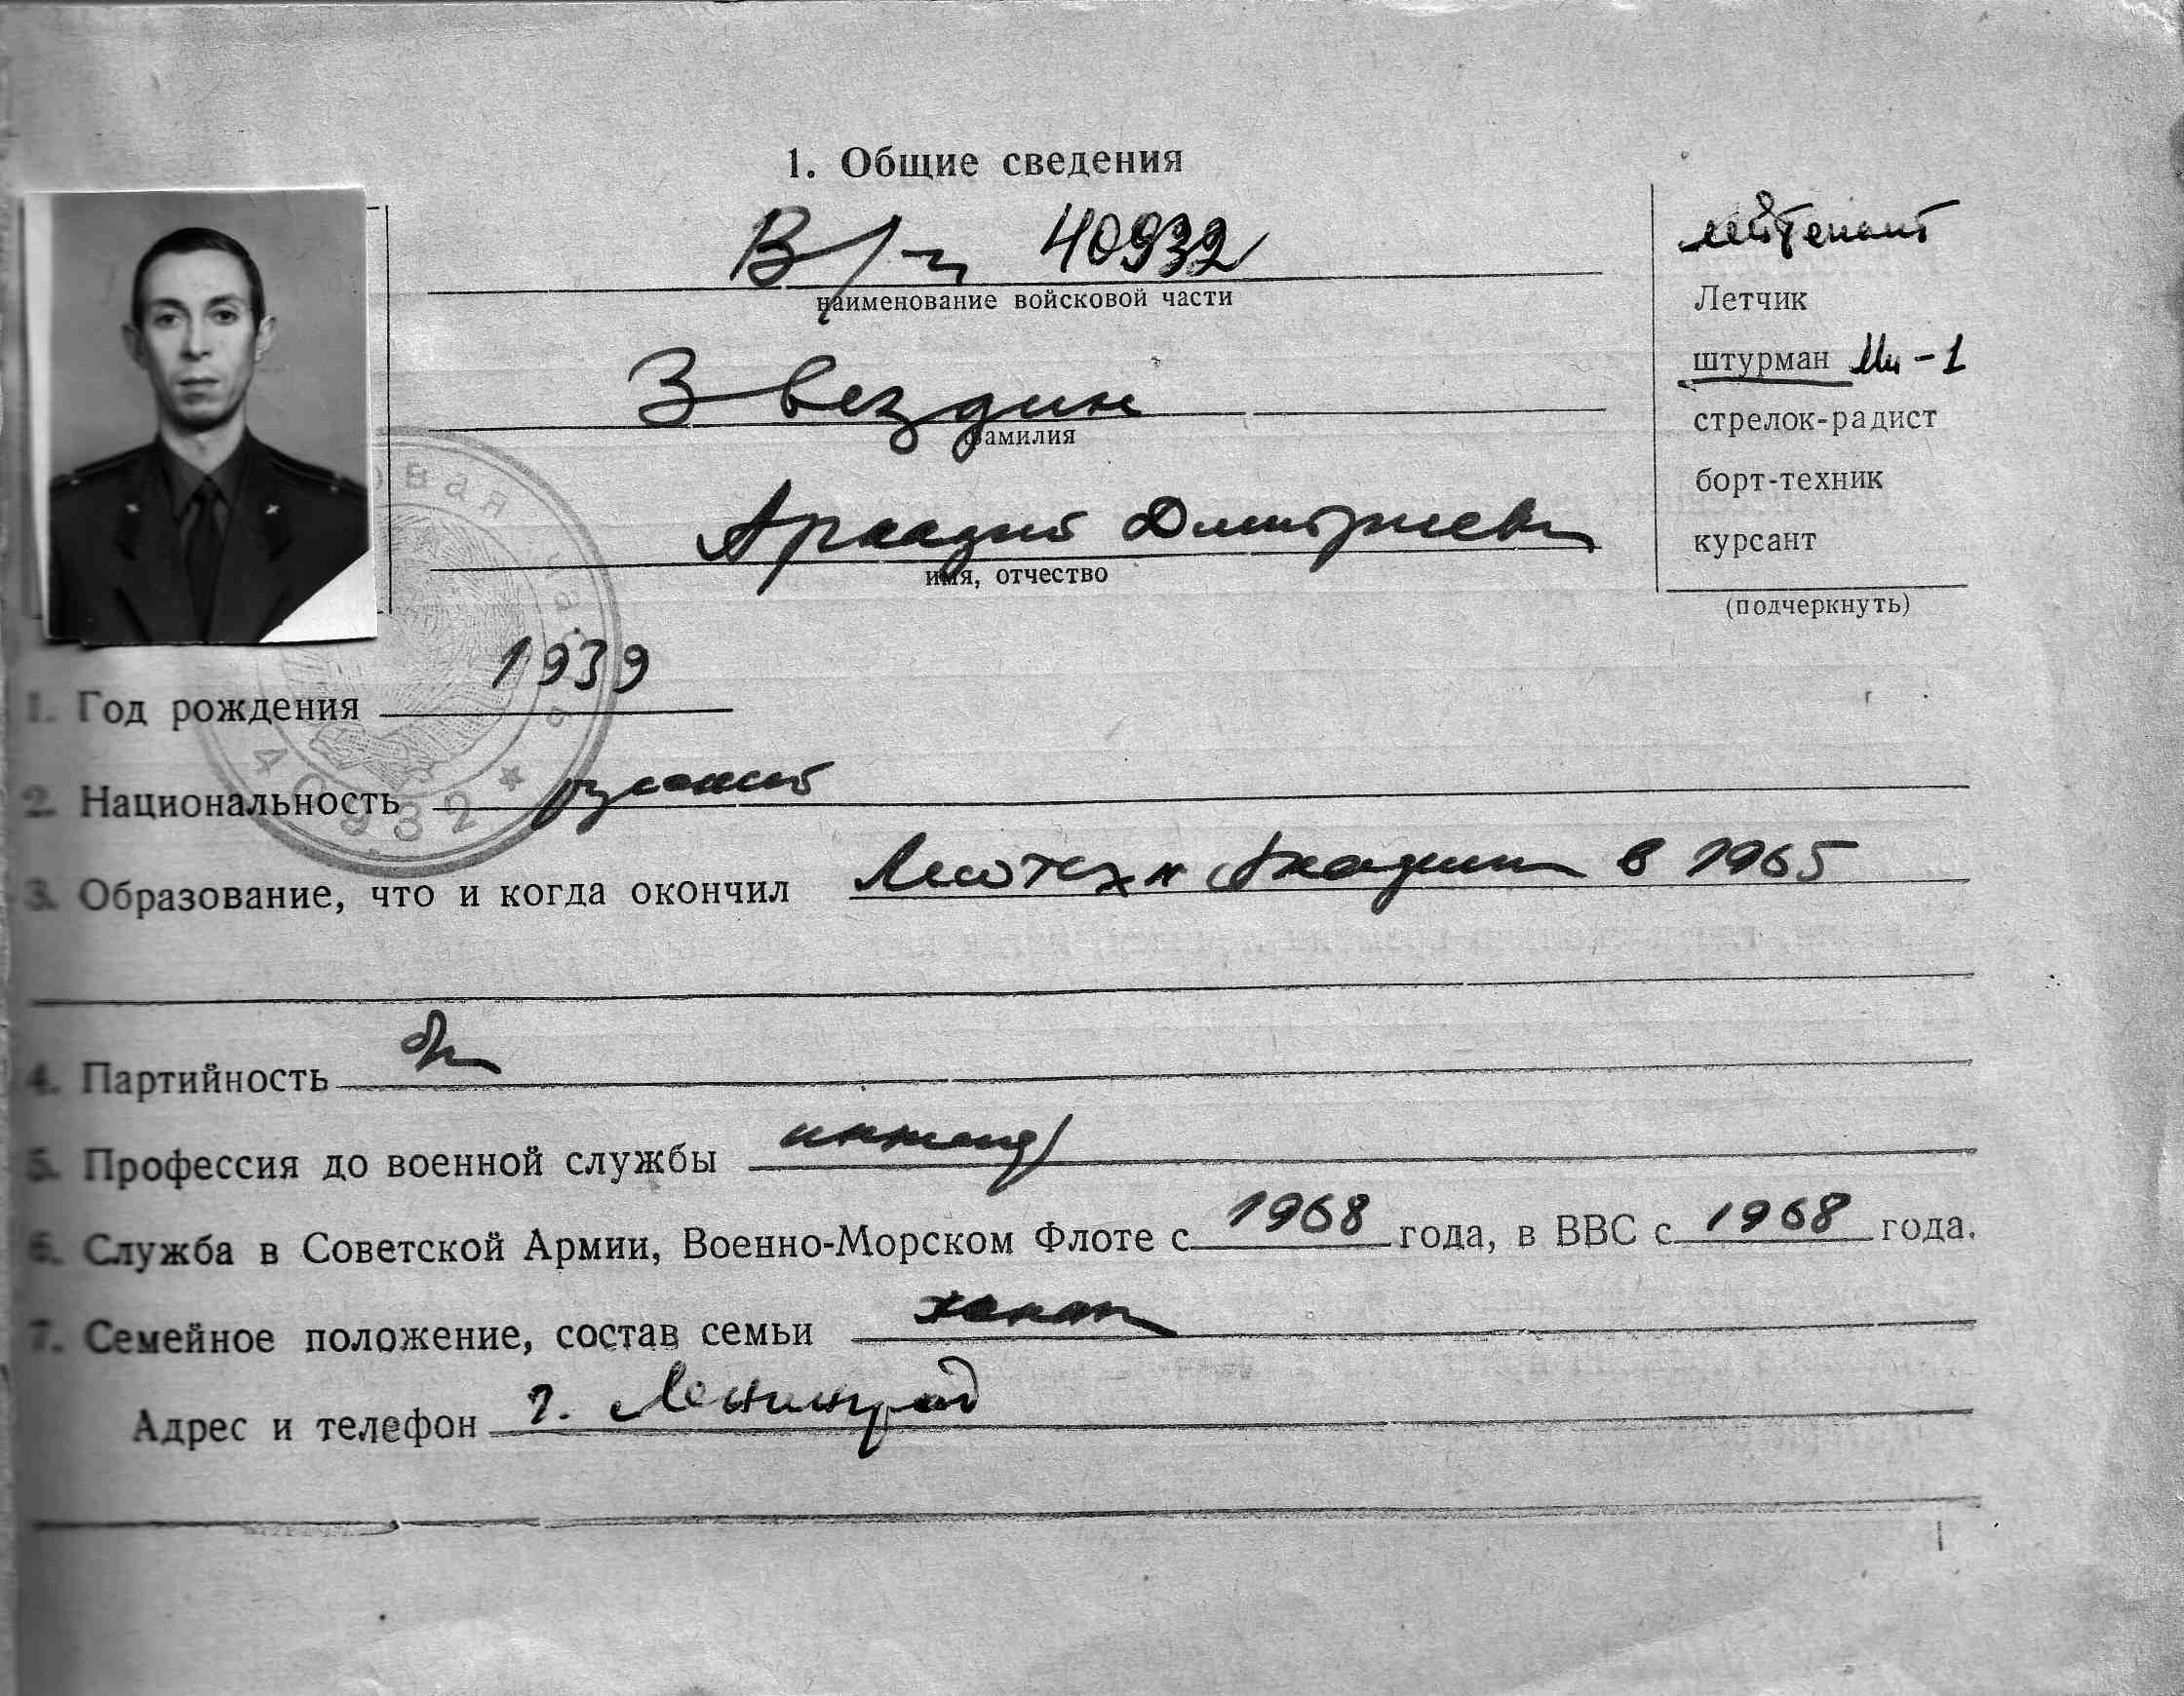 1. Общие сведения
В/ч 40932
наименование войсковой части
Звездин
фамилия
Аркадий Дмитриевич
имя, отчество
лейтенант
Летчик
штурман Ми-1
стрелок-радист
борт-техник
курсант
(подчеркнуть)
1. Год рождения 1939
2. Национальность русский
3. Образование, что и когда окончил Лесотехн Академию в 1965
4. Партийность бп
5. Профессия до военной службы инженер
6. Служба в Советской Армии, Военно-Морском Флоте с 1968 года, в ВВС с 1968 года.
7. Семейное положение, состав семьи женат
Адрес и телефон г. Ленинград